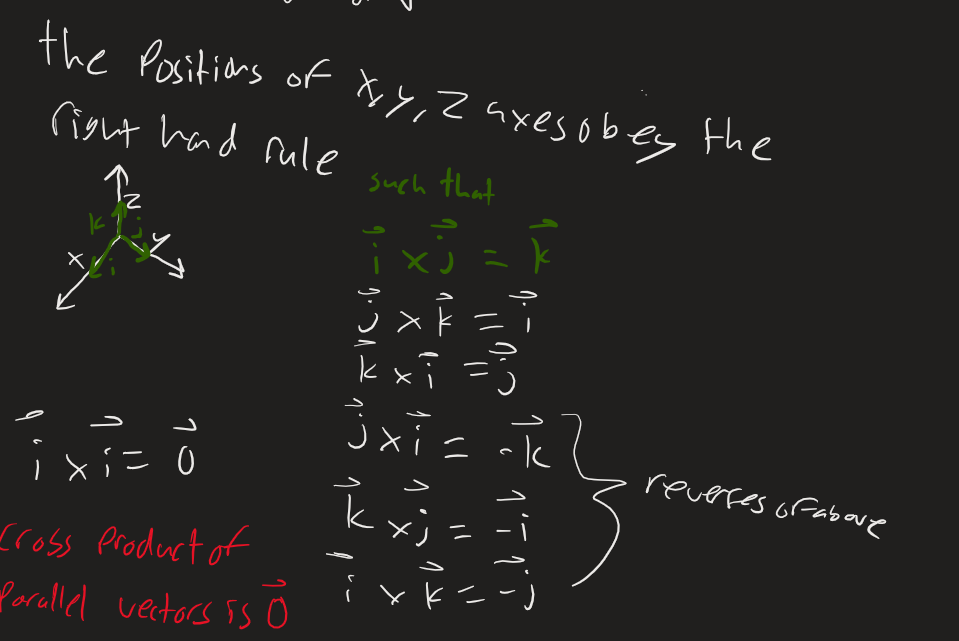 the Positions of x, y, z axes obey the
right hand rule
such that
z
k j
x y
i
i⃗ × j⃗ = k⃗
j⃗ × k⃗ = i⃗
k⃗ × i⃗ = j⃗
j⃗ × i⃗ = -k⃗
k⃗ × j⃗ = -i⃗
i⃗ × k⃗ = -j⃗
reverses of above
i⃗ × i⃗ = 0⃗
Cross Product of
Parallel vectors is 0⃗